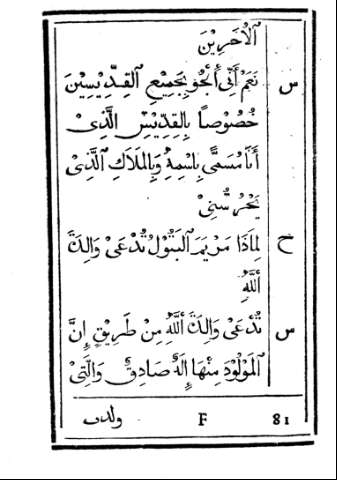 اَلْأَخَرِيْنَ
س نَعَمْ أَنِّي أَلْجُو بِجَمِيْعِ القِدِّيْسِيْنَ
خُصُوْصاً بِالقِدِّيْسِ الَّذِيْ
أَنَا مُسَمًّى بِاسْمِهِ وَبِالمَلَاكِ الَّذِيْ
يَحْرُسُنِيْ
ح لِمَاذَا مَرْيَمَ البَتُوْلُ تُدْعَى وَالِدَةَ
اَللَّهِ
س تُدْعَى وَالِدَةَ اَللَّهِ مِنْ طَرِيْقِ إِنَّ
اَلمَوْلُوْدَ مِنْهَا إِلَهٌ صَادِقٌ وَالَّتِيْ
81 F ولدت